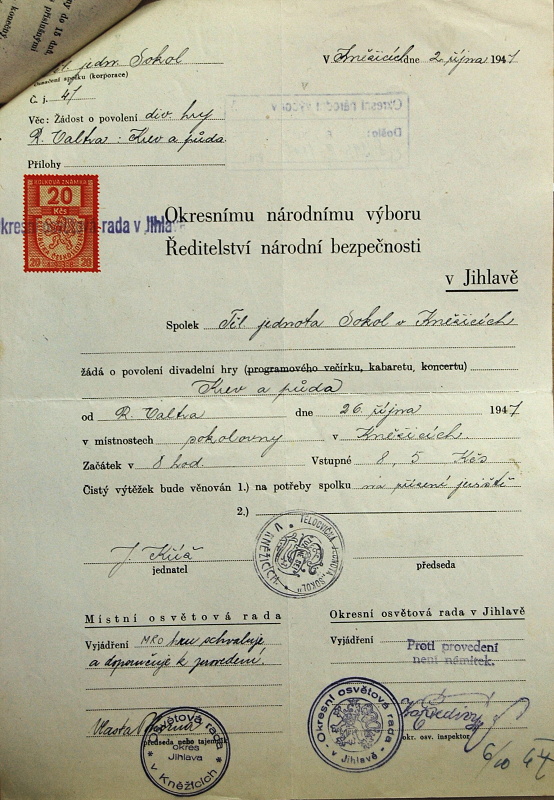 ny do 15 dnů,
příslušnými
koncertny,
jedn. Sokol
V Kněžicích dne 2. října 1947
Označení spolku (korporace)
Č. j. 47
Okresní národní výbor v
Došlo:
Věc: Žádost o povolení div. hry
R. Valtra: Krev a půda.
Přílohy
KOLKOVÁ ZNÁMKA
20
Kčs
REPUBLIKA ČESKOSLOVENSKÁ
20 20
okresní osvětová rada v Jihlavě
Okresnímu národnímu výboru
Ředitelství národní bezpečnosti
v Jihlavě
Spolek Těl. jednota Sokol v Kněžicích
žádá o povolení divadelní hry (programového večírku, kabaretu, koncertu)
Krev a půda
od R. Valtra dne 26. října 1947
v místnostech sokolovny v Kněžicích.
Začátek v 8 hod. Vstupné 8, 5 Kčs
Čistý výtěžek bude věnován 1.) na potřeby spolku na zřízení jeviště
2.)
TĚLOCVIČNÁ JEDNOTA „SOKOL“ V KNĚŽICÍCH
J.
jednatel
předseda
Místní osvětová rada
Okresní osvětová rada v Jihlavě
Vyjádření MRO hru schvaluje
a doporučuje k provedení.
Vyjádření
Proti provedení
není námitek.
Vlasta
předseda nebo tajemník
Osvětová rada
okres
Jihlava
v Kněžicích
Okresní osvětová rada
v Jihlavě
okr. osv. inspektor
6/10 47